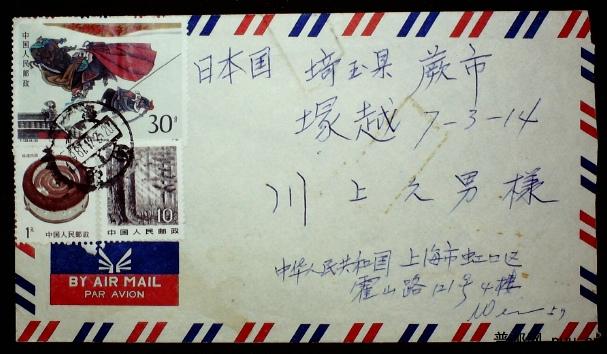 中国人民邮政
30分
1分
中国人民邮政
10
中国人民邮政
BY AIR MAIL
PAR AVION
日本国 埼玉県 蕨市
塚越 7-3-14
川上久男 様
中华人民共和国 上海市虹口区
霍山路121号4楼